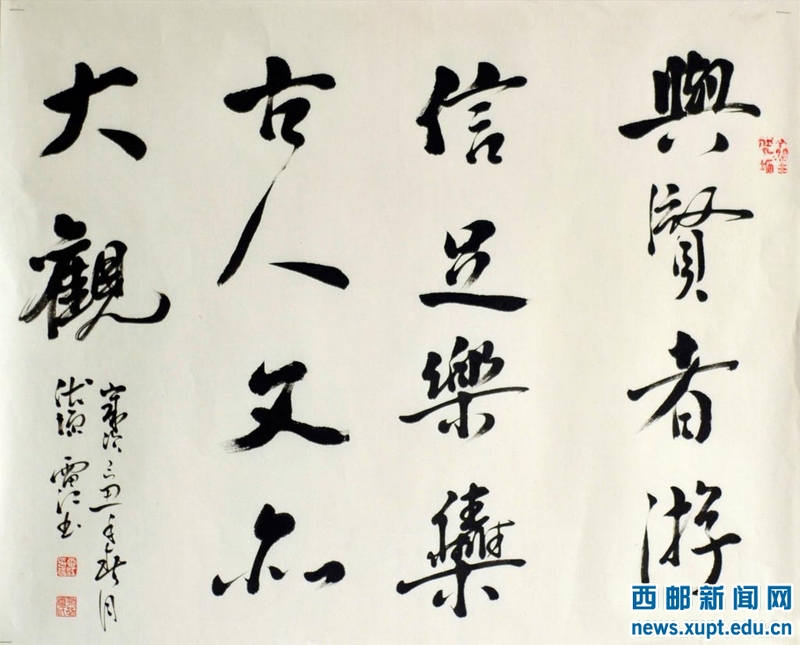 與賢者游
信足樂雧
古人文亦
大觀
歲次己丑年秋月
雷江書
西邮新闻网
news.xupt.edu.cn